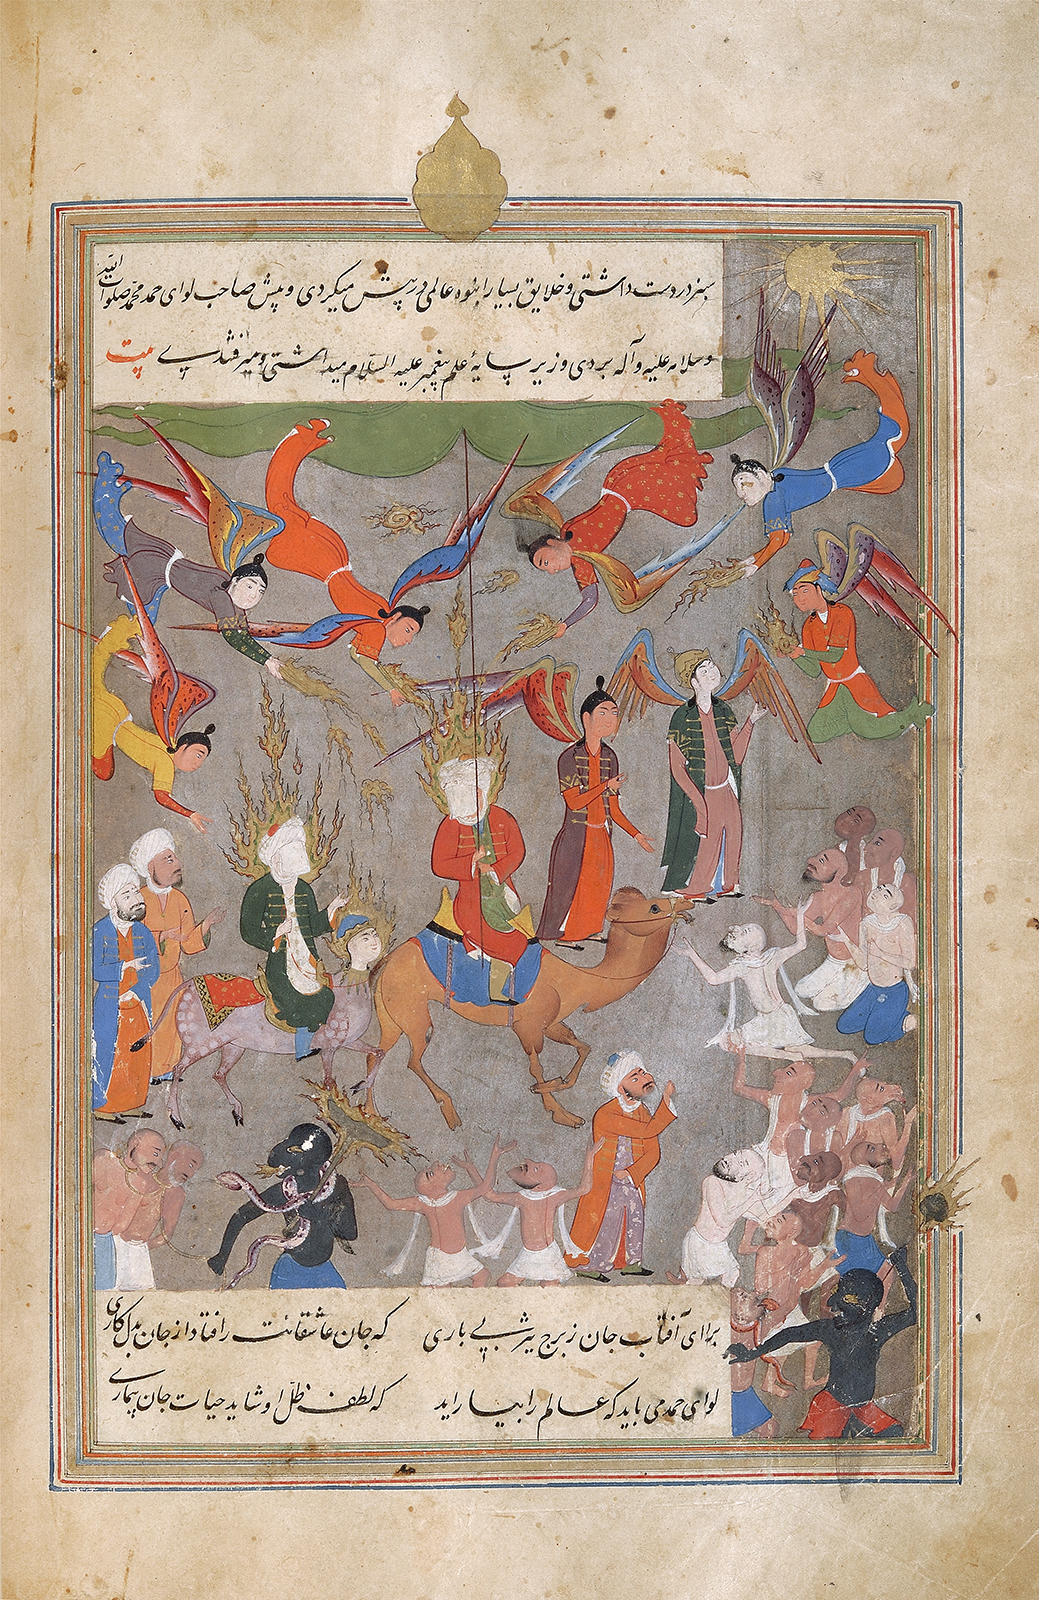 سبز در دست داشتی و خلایق بسیار و انبوه عالمی در پیش میکردی و پیش صاحب لوای حمد محمد صلوات الله
و سلامه علیه و آله بردی و زیر پایهٔ علم پیغمبر علیه السلام میداشتی و میرفتند پی بیت
برای آفتاب جان ز برج یثربی باری که جان عاشقانت را فتاد از جان بدل کاری
لوای حمد می باید که عالم را بیاراید که لطف ظل او شاید حیات جان بیماری